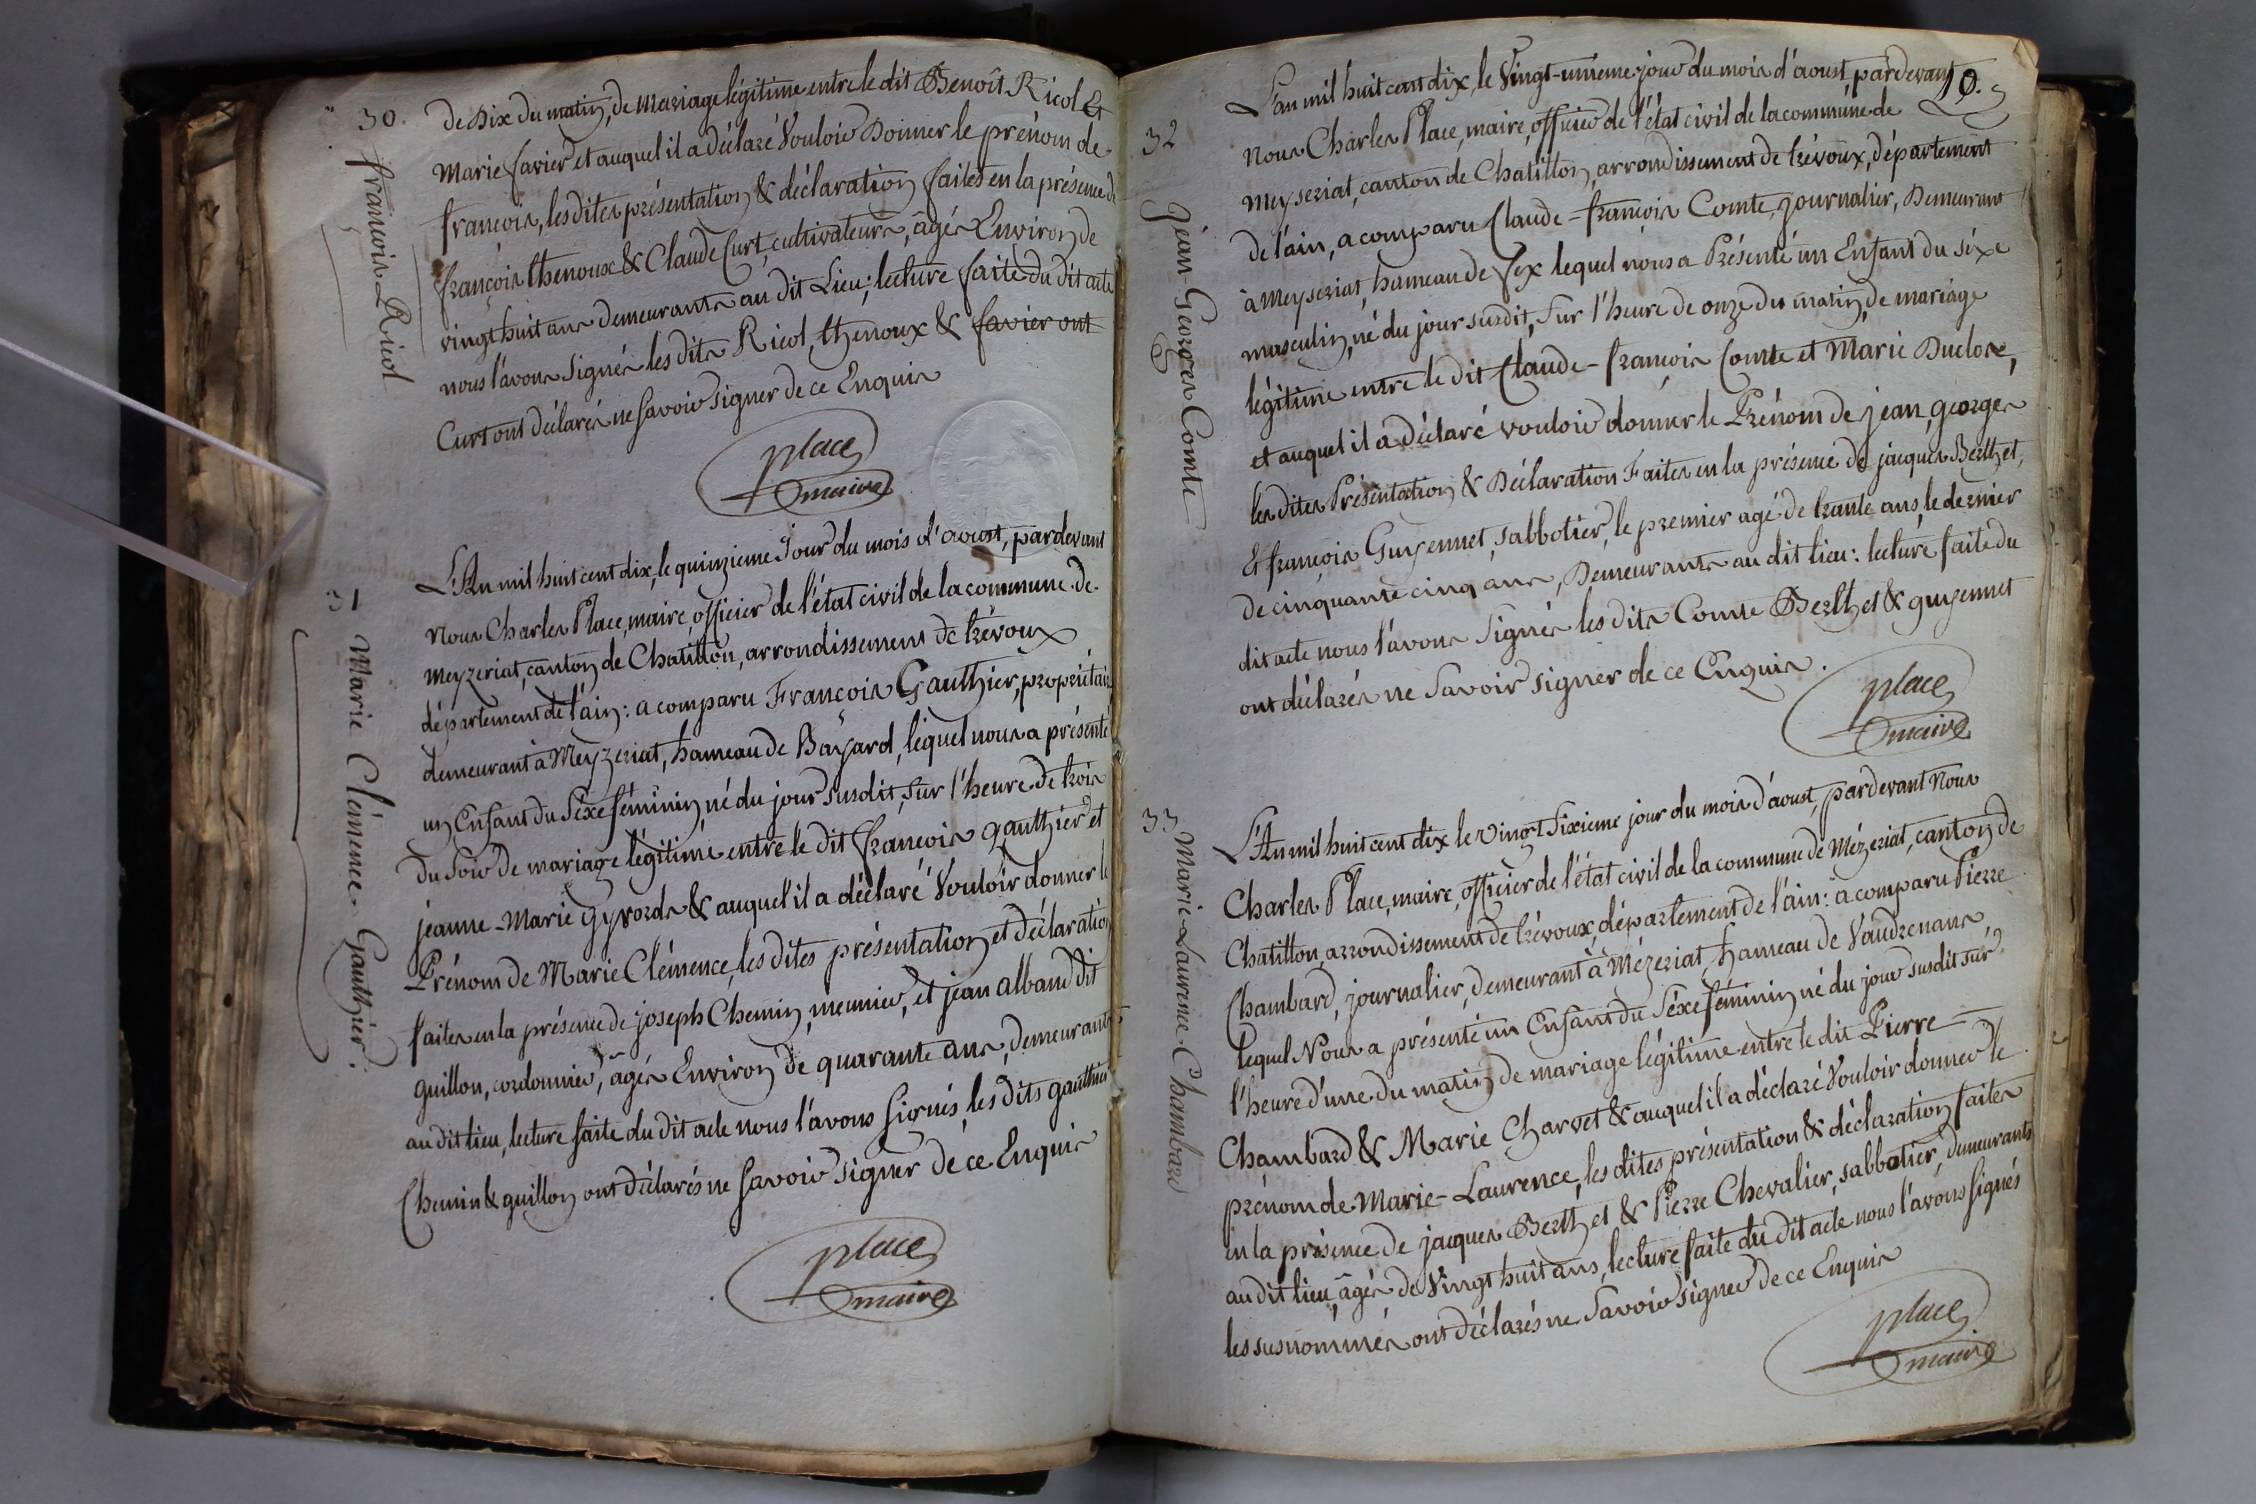 30.
françois Ricol
de Dix du matin, de mariage légitime entre le dit Benoît Ricol &
Marie favier et auquel il a déclaré Vouloir Donner le prénom de
françois, les dites présentation & déclaration faites en la présence de
françois thenoux & Claude Curt, cultivateurs, âgés Environ de
vingt huit ans demeurants au dit Lieu; lecture faite du dit acte
nous l'avons Signés les dits Ricol, thenoux & favier ont
Curt ont déclarés ne Savoir Signer de ce Enquis
place
maire
31
Marie Clémence Gauthier.
L'An mil huit cent dix, le quinzieme Jour du mois d'aoust, pardevant
Nous Charles Place, maire, officier de l'état civil de la commune de
Meyzeriat, canton de Chatillon, arrondissement de trévoux
département de l'ain: a comparu François Gauthier, propriétaire
demeurant à Meyzeriat, hameau de Bayard, lequel nous a présenté
un Enfant du Séxe féminin né du jour susdit, sur l'heure de trois
du Soir de mariage légitime entre le dit françois gauthier et
jeanne-Marie Gyrords & auquel il a déclaré Vouloir donner le
Prénom de Marie Clémence, les dites présentation et déclaration
faites en la présence de joseph Chemin, meunier, et jean alband dit
guillon, cordonnier, âgés Environ de quarante ans, demeurants
au dit lieu, lecture faite du dit acte nous l'avons Signés, les dits gauthier
Chemin & guillon ont déclarés ne Savoir Signer de ce Enquis
place
maire
10.
32
jean-Georges Comte
L'an mil huit cent dix, le Vingt-unieme jour du mois d'aoust, pardevant
nous Charles Place, maire, officier de l'état civil de la commune de
meyseriat, canton de Chatillon, arrondissement de trévoux, département
de l'ain, a comparu Claude-françois Comte, journalier, Demeurant
à Meyseriat, hameau de Vex lequel nous a Présenté un Enfant du séxe
masculin, né du jour susdit, Sur l'heure de onze du matin, de mariage
légitime entre le dit Claude-françois Comte et Marie Duclos,
et auquel il a déclaré vouloir donner le Prénom de jean, georges
les dites Présentation & Déclaration Faites en la présence de jacques Berthet,
& françois Guyennet, sabbotier, le premier agé de trante ans, le dernier
de cinquante cinq ans, Demeurants au dit lieu: lecture faite du
dit acte nous l'avons Signés les dits Comte Berthet & guyennet
ont déclarés ne Savoir Signer de ce Enquis.
place
maire
33
Marie-Laurence Chambard
L'An mil huit cent dix le vingt Sixieme jour du mois d'aoust, pardevant Nous
Charles Place, maire, officier de l'état civil de la commune de Mézeriat, canton de
Chatillon, arrondissement de trévoux, département de l'ain: a comparu Pierre
Chambard, journalier, demeurant à Mézeriat, hameau de Vaudrenans
lequel Nous a présenté un Enfant du Séxe féminin né du jour susdit sur
l'heure d'une du matin de mariage légitime entre le dit Pierre
Chambard & Marie Charvet & auquel il a déclaré Vouloir donner le
prénom de Marie-Laurence, les dites présentation & déclaration faites
en la présence de jacques Berthet & Pierre Chevalier, sabbotier, demeurants
au dit lieu, âgés de Vingt huit ans, lecture faite du dit acte nous l'avons Signés
les susnommés ont déclarés ne Savoir Signer de ce Enquis
place
maire